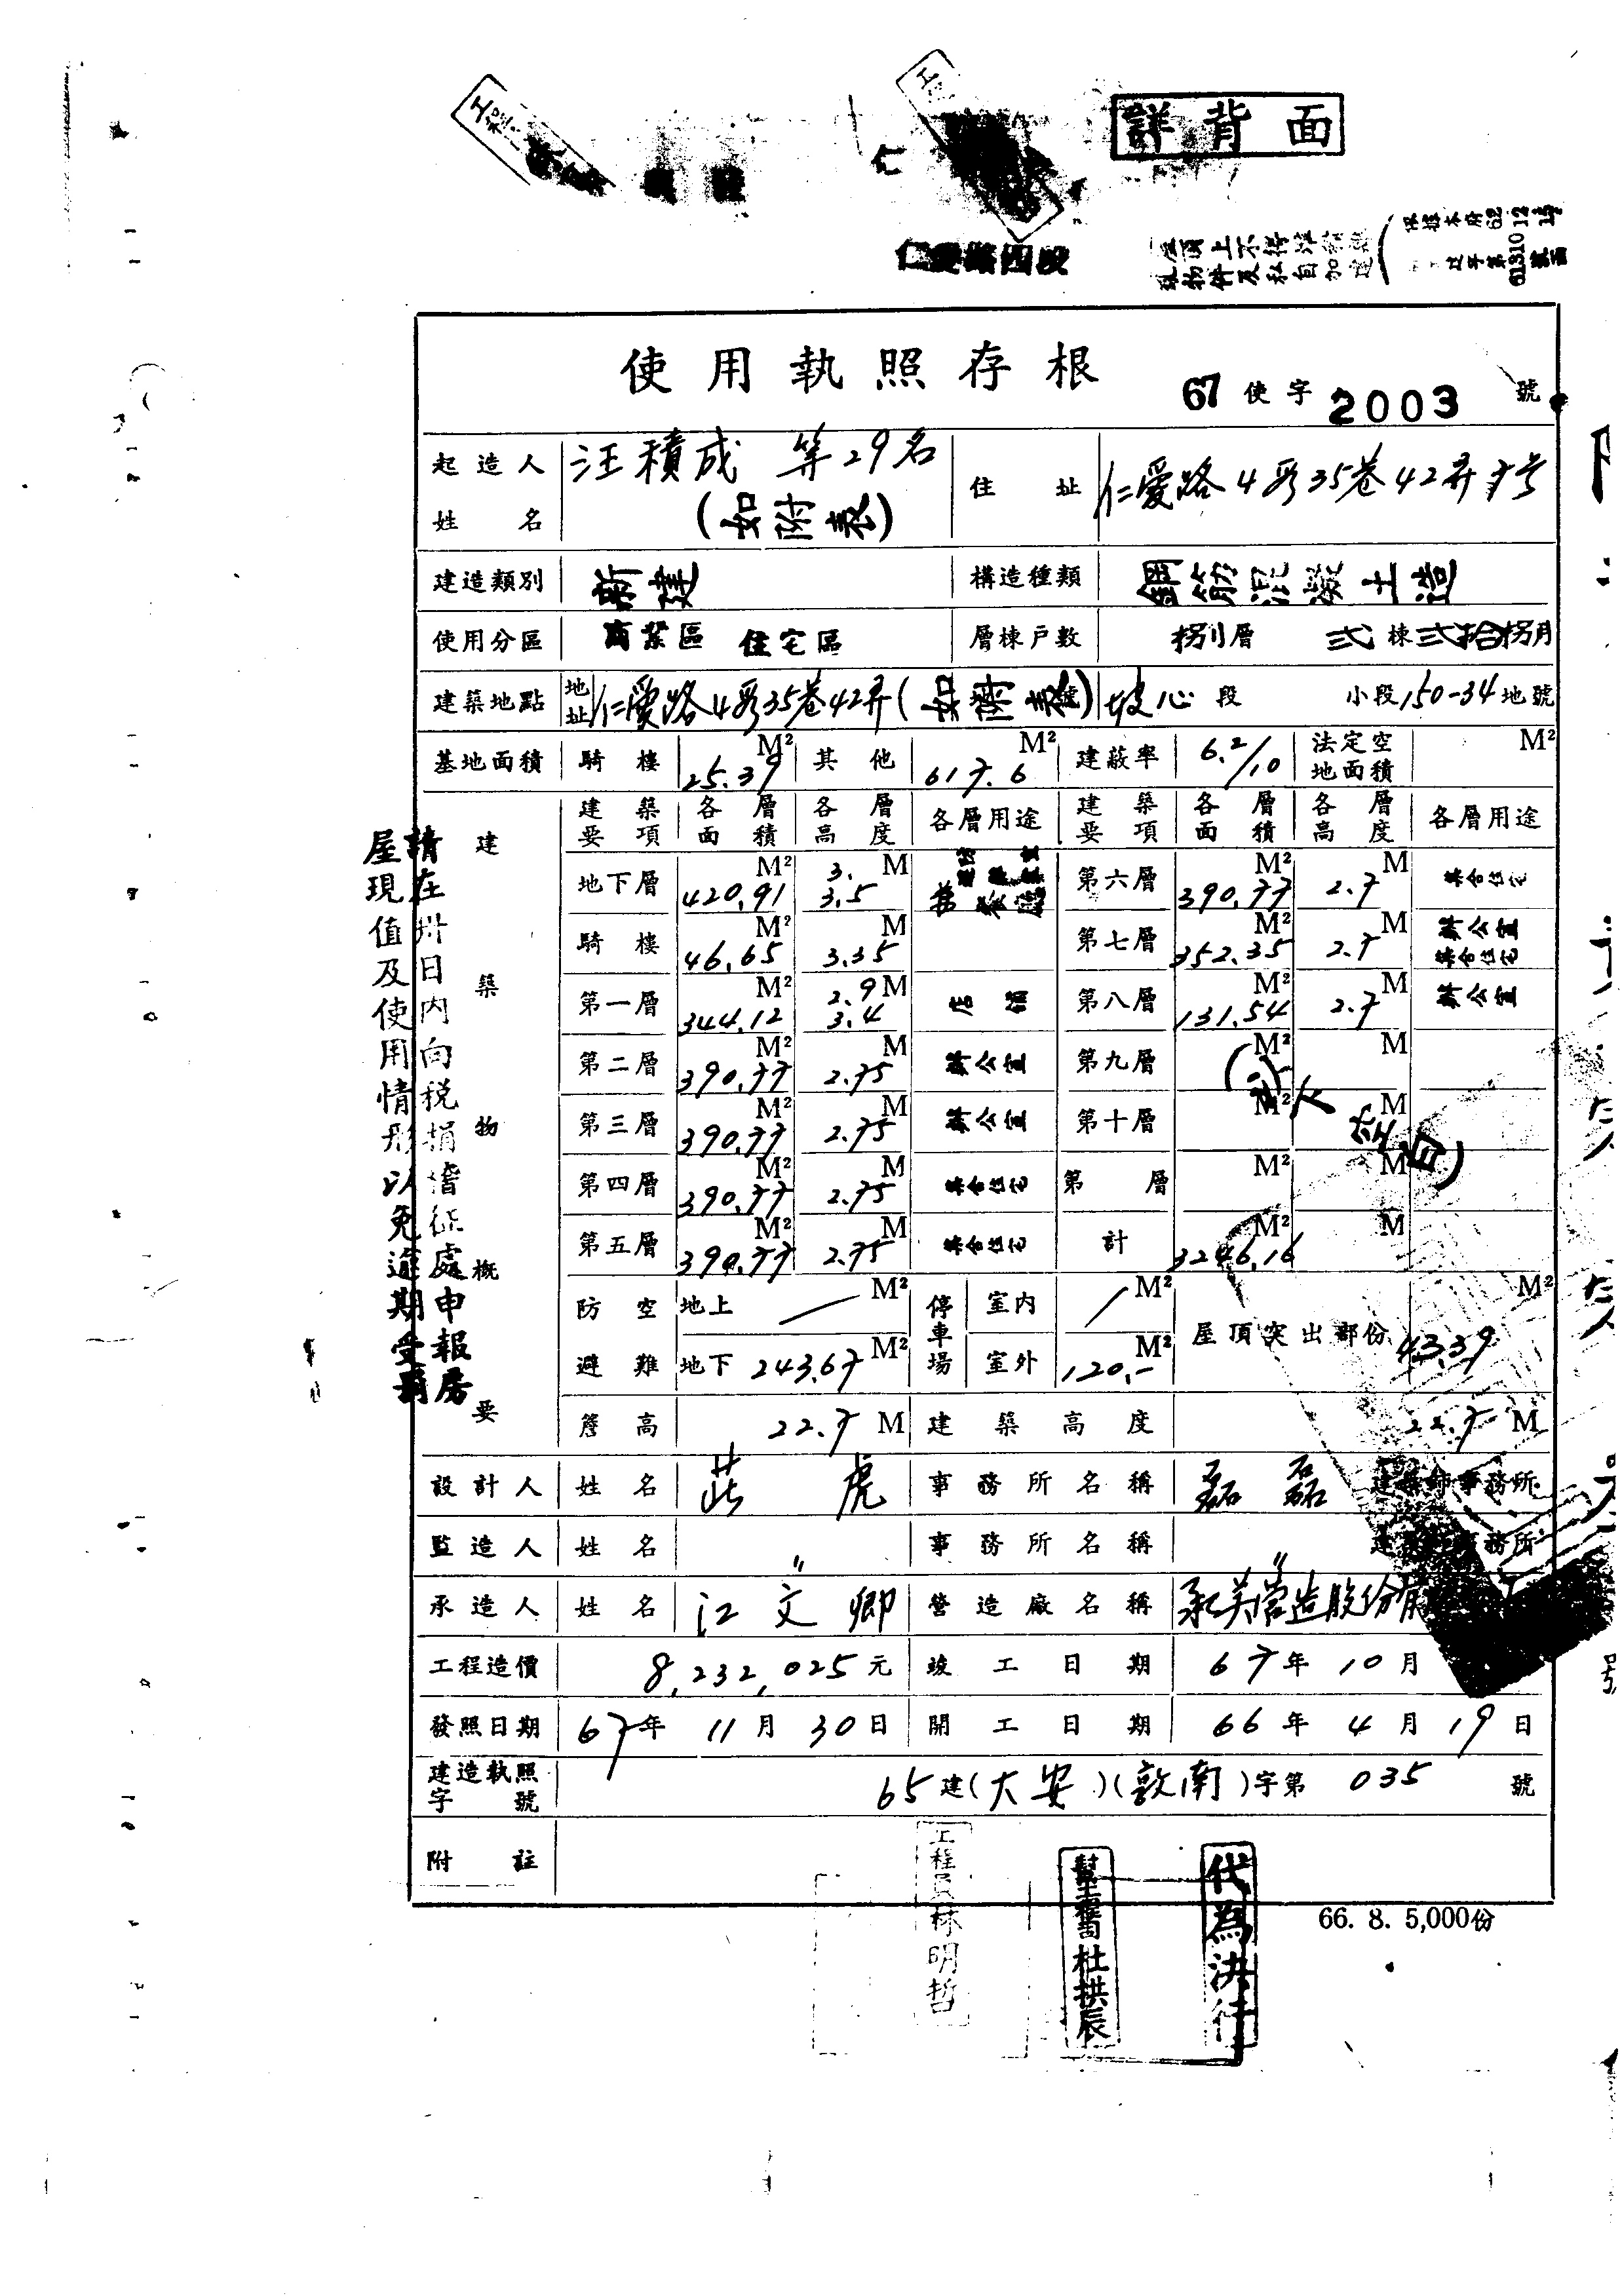 詳背面
仁愛路四段
使用執照存根
67 使字 2003 號
起造人姓名 汪積成 等29名 (如附表) 住址 仁愛路4段35巷42弄7号
建造類別 新建 構造種類 鋼筋混凝土造
使用分區 商業區 住宅區 層棟戶數 捌層 弍棟弍拾捌戶
建築地點 地址 仁愛路4段35巷42弄 坡心段 小段150-34地號
基地面積 騎樓 25.39 M² 其他 617.6 M² 建蔽率 6.2/10 法定空地面積 M²
建築物概要
建築要項 各層面積 各層高度 各層用途 建築要項 各層面積 各層高度 各層用途
地下層 420.91 M² 3. 3.5 M 第六層 390.77 M² 2.7 M 集合住宅
騎樓 46.65 M² 3.35 M 第七層 352.35 M² 2.7 M 辦公室 集合住宅
第一層 344.12 M² 2.9 3.4 M 店舖 第八層 131.54 M² 2.7 M 辦公室
第二層 390.77 M² 2.75 M 辦公室 第九層 M² M
第三層 390.77 M² 2.75 M 辦公室 第十層 M² M
(以下空白)
第四層 390.77 M² 2.75 M 集合住宅 第 層 M² M
第五層 390.77 M² 2.75 M 集合住宅 計 3246.16 M² M
防空避難 地上 / M² 停車場 室內 / M² 屋頂突出部份 43.39 M²
地下 243.67 M² 室外 120.- M²
簷高 22.7 M 建築高度 22.7 M
設計人 姓名 虎 事務所名稱 磊磊 建築師事務所
監造人 姓名 〃 事務所名稱 〃 建築師事務所
承造人 姓名 江文卿 營造廠名稱 承美營造股份有
工程造價 8,232,025元 竣工日期 67年10月
發照日期 67年11月30日 開工日期 66年4月19日
建造執照字號 65建(大安)(敦南)字第 035 號
附註
請在卅日內向稅捐稽征處申報房
屋現值及使用情形以免逾期受罰
工程員林明哲
杜拱辰
代為決行
66. 8. 5,000份